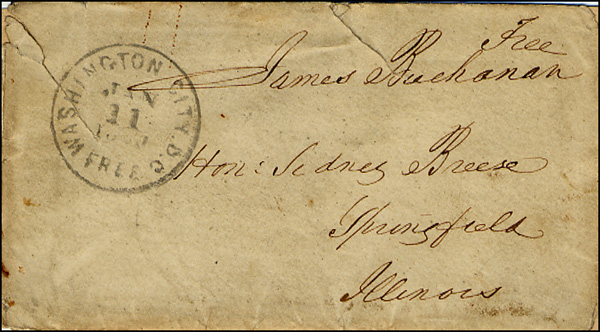 Free
James Buchanan
WASHINGTON CITY D.C.
JAN
11
FREE
Hon: Sidney Breese
Springfield
Illinois